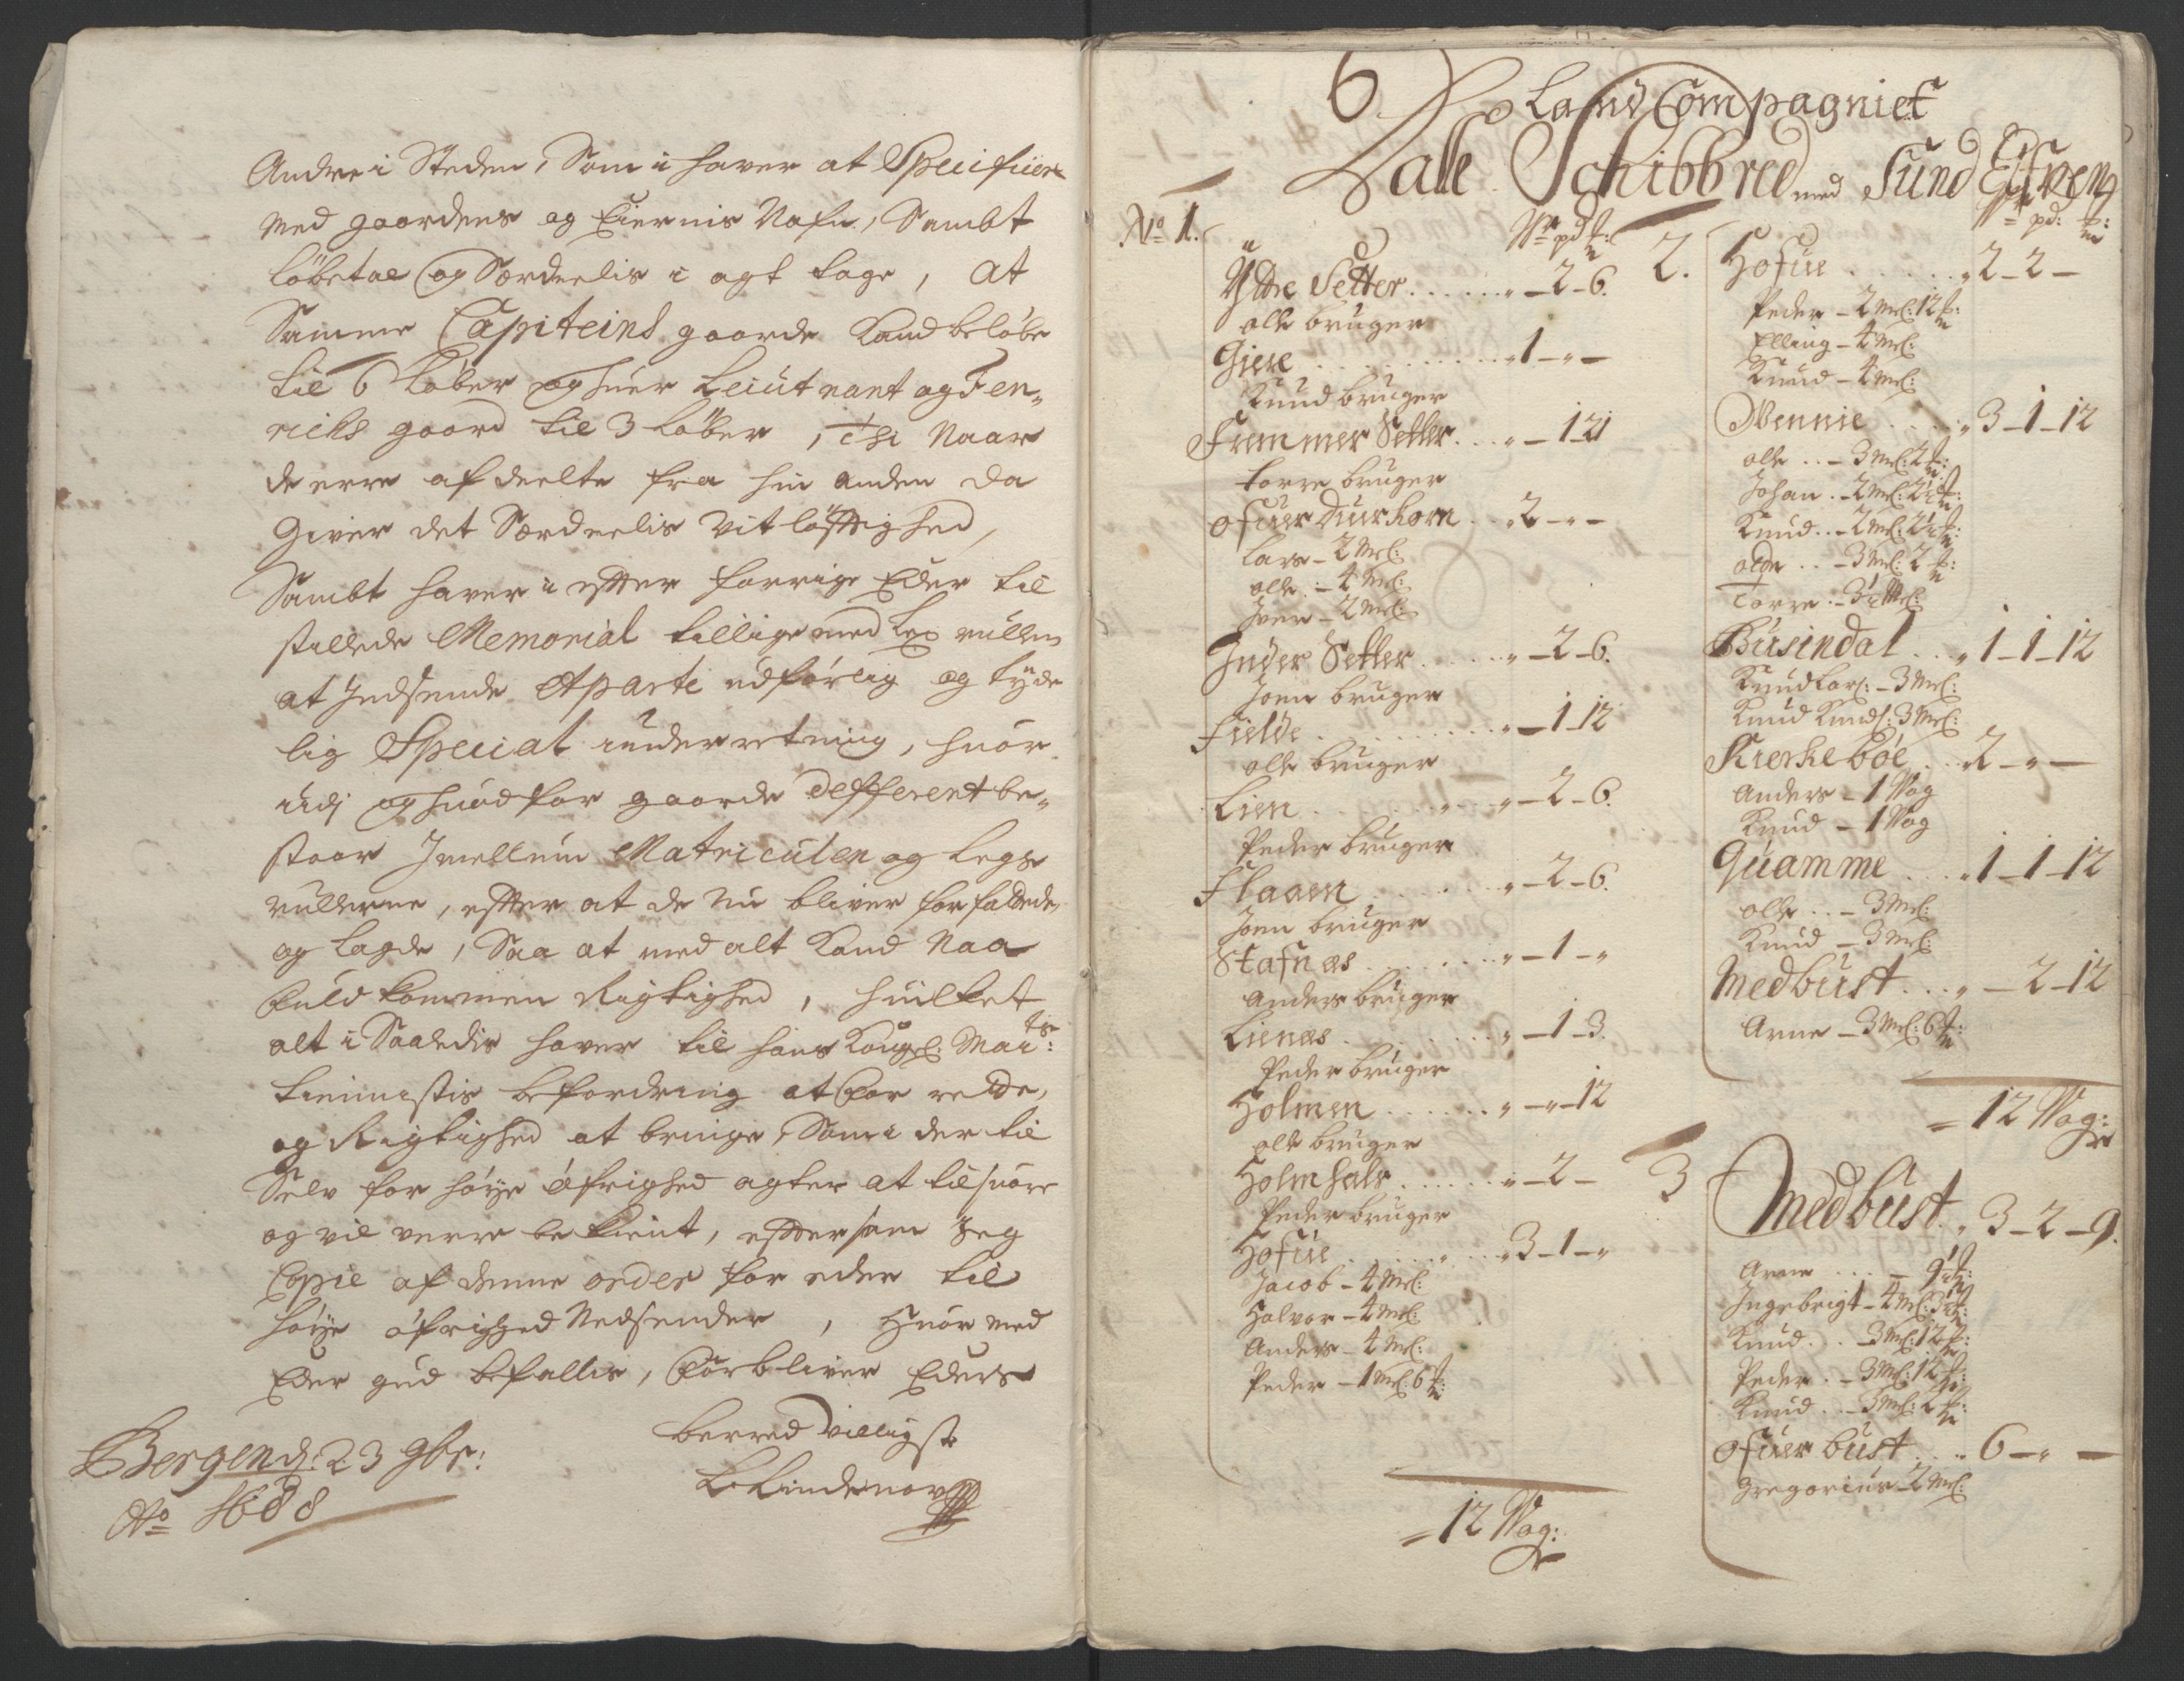 Andre i Steden, Som i haver at Specificere
med gaardens og Eiernis Nafn, Sambt
Løbetal og Særdeelis i agt tage, at
Samme Capiteins gaarde kand beløbe
til 6 Løber og huer Leiutnant og Fen„
richs gaard til 3 Løber, thi Naar
de erre afdeelte fra hin anden da
Giver det Særdeelis Vitløfftighed,
Sambt haver i effter forrige Eder til
stillede Memorial tillige med Leg rullen
at Indsende Aparte udførlig og tyde
lig Special underretning, huor
udj og huad for gaarde defferent be„
staar Imellem Matriculen og Legs
rullerne, effter at de Nu bliver forfattede
og Lagde, Saa at med alt kand Naa
fuldkommen Rigtighed, huilket
alt i Saaledis haver til hans Kongel: Mai:ts
tiennistis befordring at forrette,
og Rigtighed at bringe, Som i der til
Selv for høye øfrighed agter at tilsuare
og vil verre bekient, efftersom Jeg
Copie af denne order for eder til
høye øfrighed Nedsender, Huor med
Eder gud befallis, forbliver Eders
beredvilligste
Lindenov
Bergen d: 23 9br:
Ao 1688
6 Land Compagniet
Dalle Schibbred med Sund Eifren
No 1.
pd
Yttre Setter . . . . „ - 2 - 6.
olle bruger
Giere . . . . „ 1 - „ -
Knud bruger
Fremmer Setter . . . „ - 1 - 21
torre bruger
ofuer Duurkorn . . „ 2 - „ -
Lars - 2 Mrl:
olle . - 4 Mrl:
Iver - 2 Mrl:
Inder Setter . . . . „ - 2 - 6.
Joen bruger
Fielde . . . . „ - 1 - 12
olle bruger
Lien . . . . „ - 2 - 6.
Peder bruger
Flaaen . . . . „ - 2 - 6.
Joen bruger
Stafnæs . . . . „ - 1 - „
Anders bruger
Lienæs . . . . „ - 1 - 3.
Peder bruger
Holmen . . . . „ - „ - 12
olle bruger
Holmhals . . . . „ - 2 -
Peder bruger
Hofue . . . . „ 3 - 1 - „
Jacob - 4 Mrl:
Halvor - 4 Mrl:
Anders - 4 Mrl:
Peder - 1 Mrl: 6 #:
= 12 Wog:
pd:
2. Hofue . . . . „ 2 - 2 -
Peder - 2 Mrl: 12 #:
Elling - 4 Mrl:
Knud - 4 Mrl:
Vennie . . . . „ 3 - 1 - 12
olle . . - 3 Mrl: 2 #:
Johan . - 2 Mrl: 2½ #:
Knud . . - 2 Mrl: 2½ #:
. . - 3 Mrl: 2 #:
Torre . - 3½ Mrl:
Busindal . . „ 1 - 1 - 12
Knud Lars: - 3 Mrl:
Knud Knuds: 3 Mrl:
Kierkebøe . . „ 2 - „ -
Anders - 1 Wog
Knud - 1 Wog
Quamme . . . . „ 1 - 1 - 12
olle . . - 3 Mrl:
Knud - 3 Mrl:
Medbust . . . „ - 2 - 12
Arne - 3 Mrl: 6 #:
= 12 Wog:
3 Medbust . „ 3 - 2 - 9.
Arne . . . - 9 #:
Ingebrigt - 4 Mrl: 3 #:
Knud . . - 3 Mrl: 12 #:
Peder . - 3 Mrl: 12 #:
Knud . . - 3 Mrl: 2 #:
ofuer bust . . „ 6 - „ -
Gregorius - 2 Mrl: